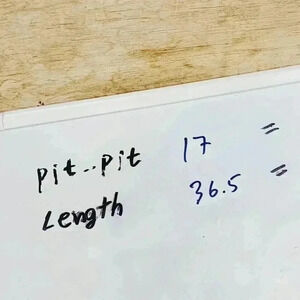 pit..pit 17 "
Length 36.5 "